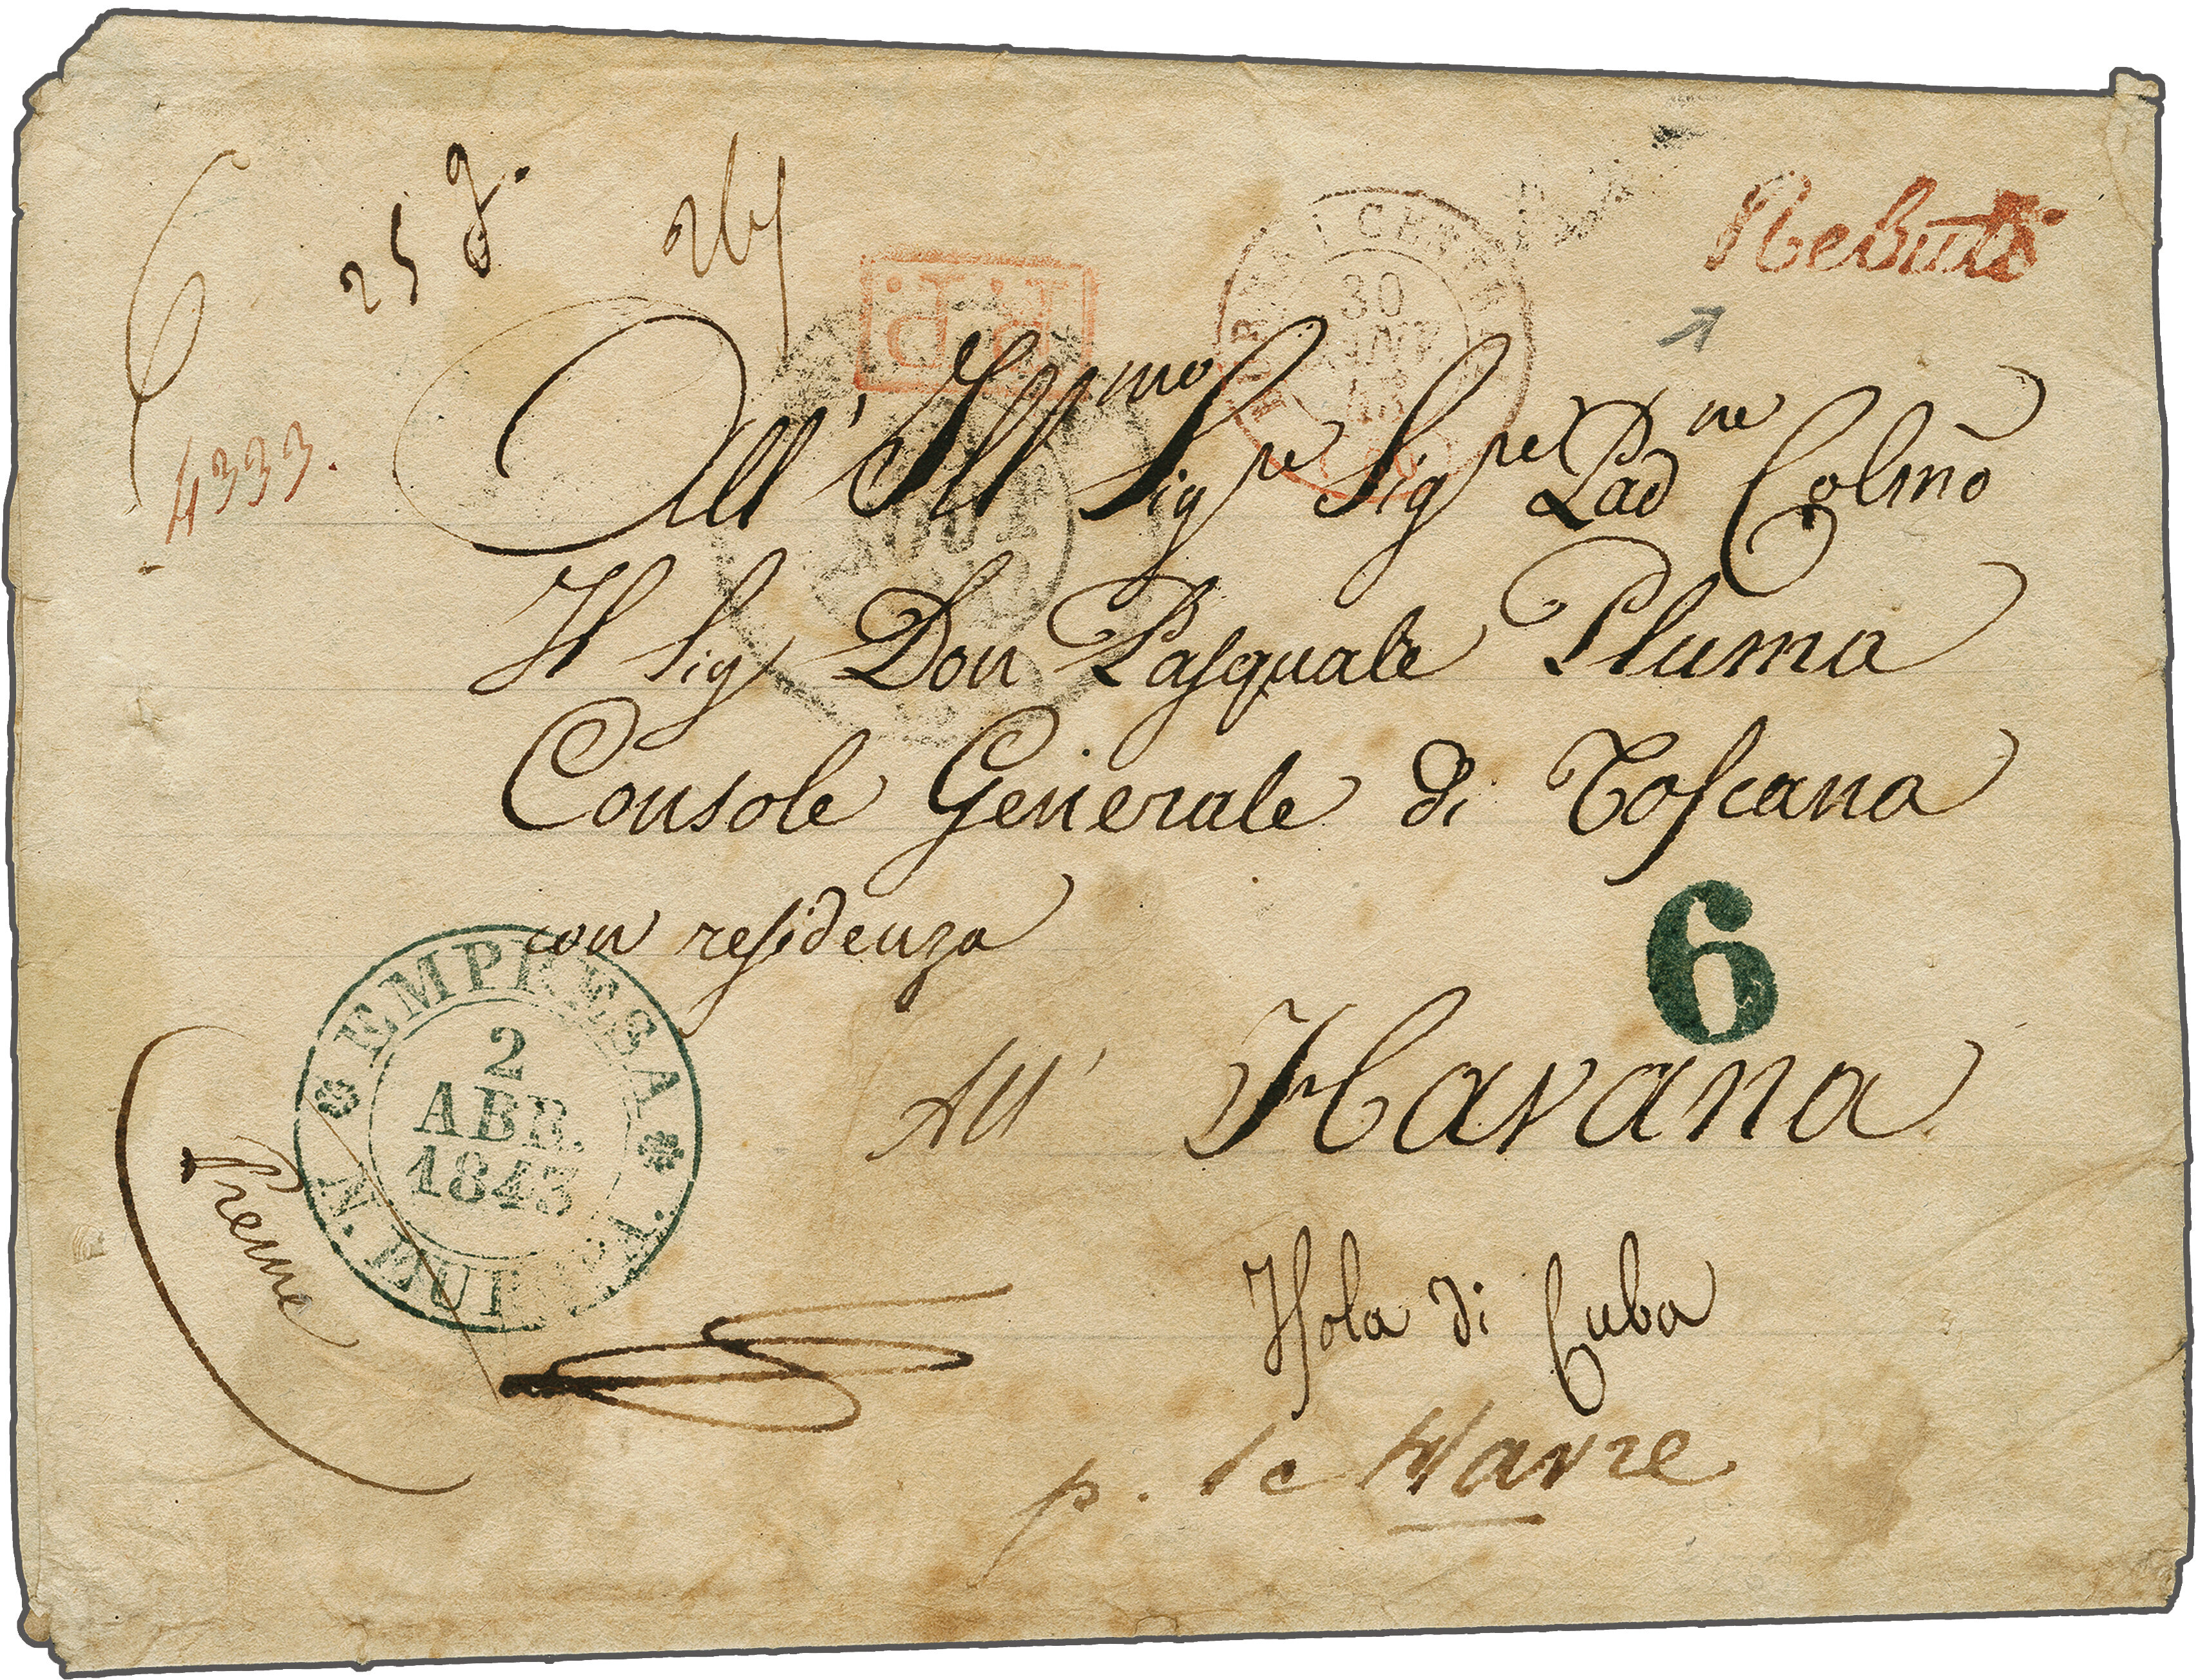 25 g.
P.P.
30
JANV.
43
Rebuts
4333.
All' Ill.mo Sig.re Sig.re Pad.ne Col.mo
Il Sig.r Don Pasquale Pluma
Console Generale di Toscana
con residenza
6
EMPRESA
2
ABR.
1843
N.
All' Havana
Isola di Cuba
Preme
p. le Havre